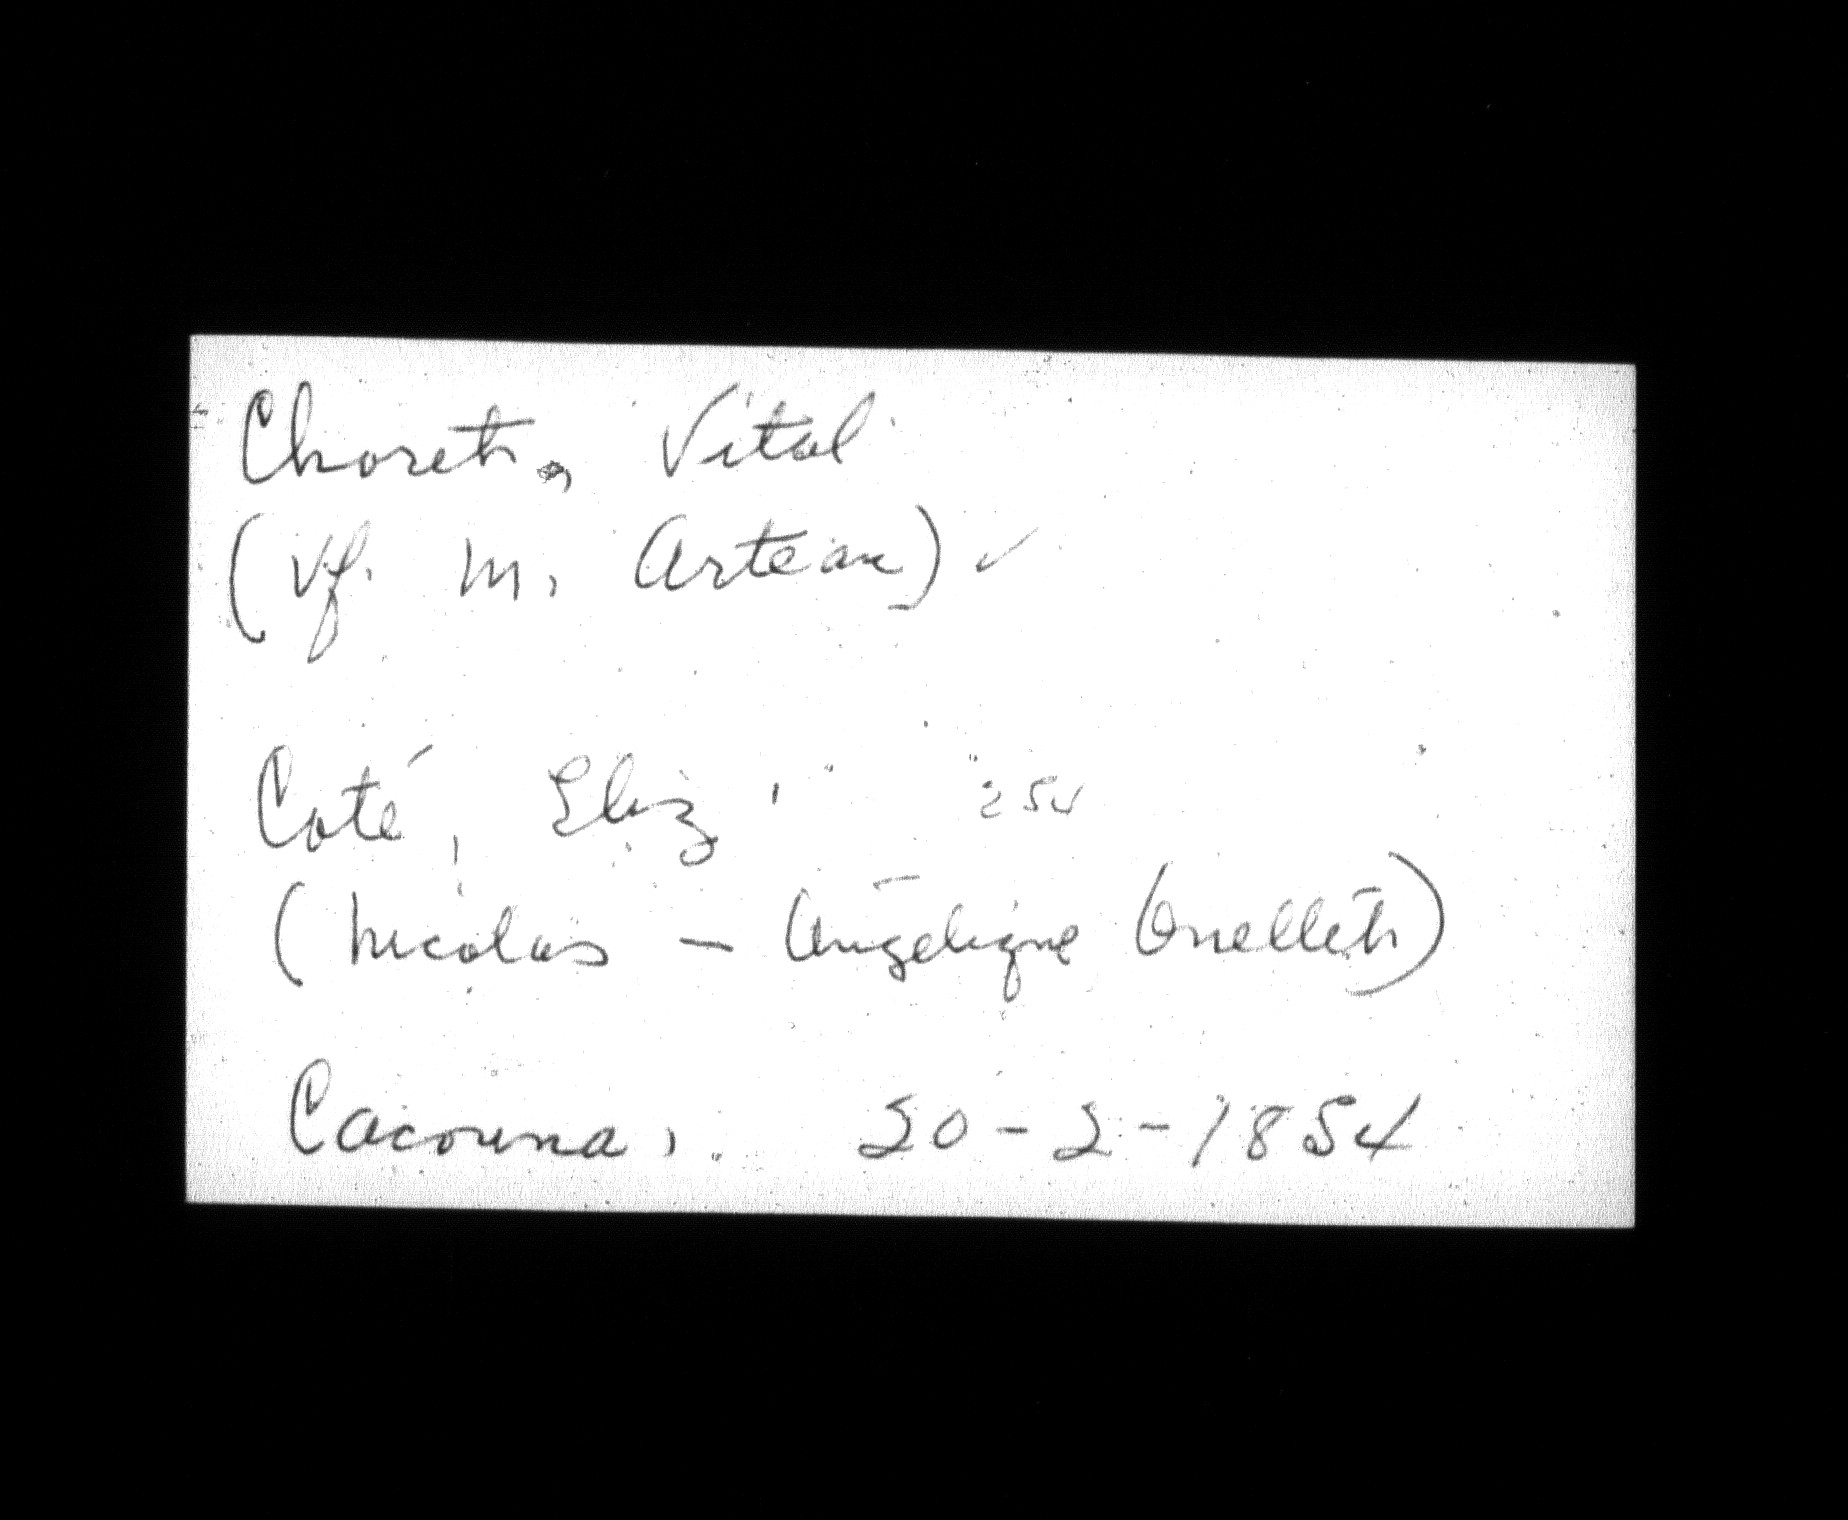 Chorette, Vital
(Vf. M. Arteau) ✓
Coté, Eliz. 254
(Nicolas - Angelique Ouellette)
Cacouna, 20-2-1854